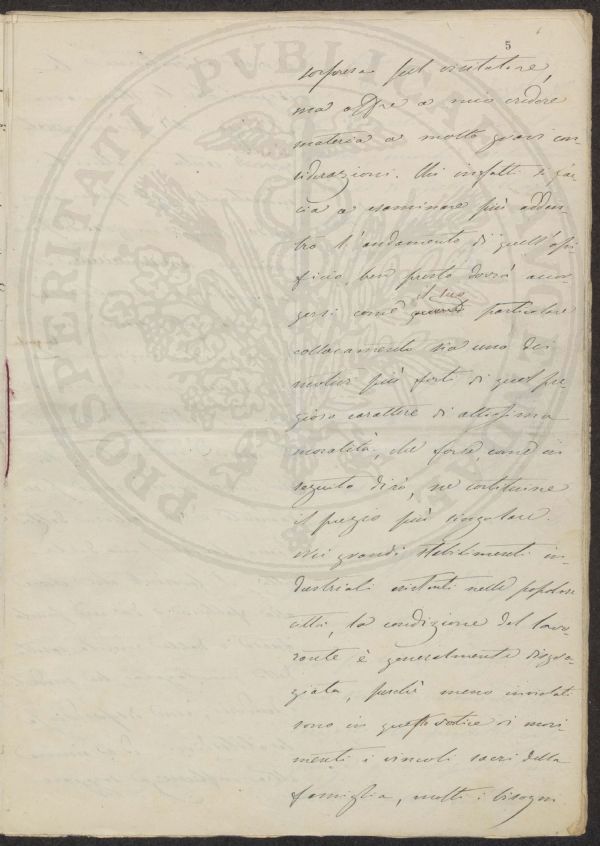 5
sorpresa pel visitatore,
ma offre a mio credere
materia a molto gravi con-
siderazioni. Chi infatti si fac-
cia a esaminare più adden-
tro l'andamento di quell'opi-
ficio, ben presto dovrà accor-
gersi come il suo particolare
collocamento sia uno dei
motivi più forti di quel pre-
gioso carattere di altissima
moralità, che forse, come in
seguito dirò, ne costituisce
il pregio più singolare.
Nei grandi stabilimenti in-
dustriali esistenti nelle popolose
città, la condizione del lavo-
rante è generalmente disgra-
ziata, perchè meno inviolati
sono in quel vortice di movi-
menti i vincoli sacri della
famiglia, molti i bisogni
PROSPERITATI PVBLICAE